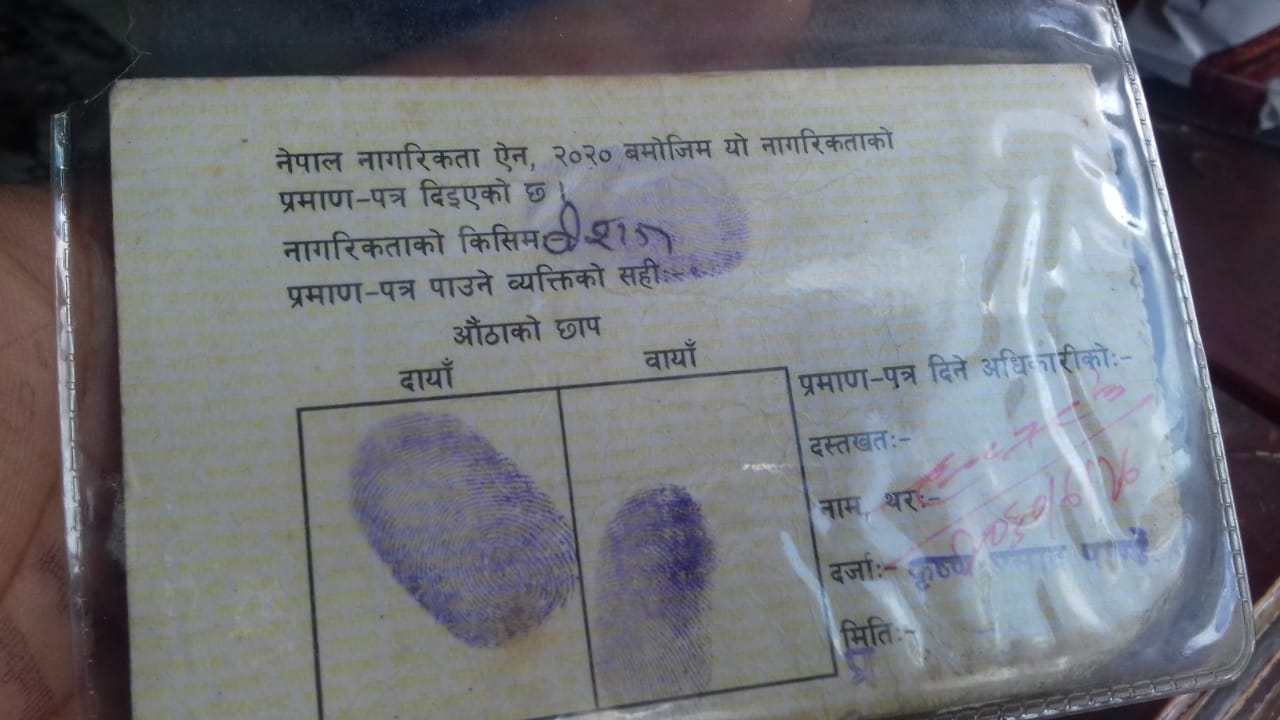 नेपाल नागरिकता ऐन, २०२० बमोजिम यो नागरिकताको
प्रमाण-पत्र दिइएको छ।
नागरिकताको किसिम वंशज
प्रमाण-पत्र पाउने व्यक्तिको सही:-
औंठाको छाप
दायाँ
वायाँ
प्रमाण-पत्र दिने अधिकारीको:-
दस्तखत:-
नाम, थर:-
दर्जा:- कृष्ण प्रसाद
मिति:-